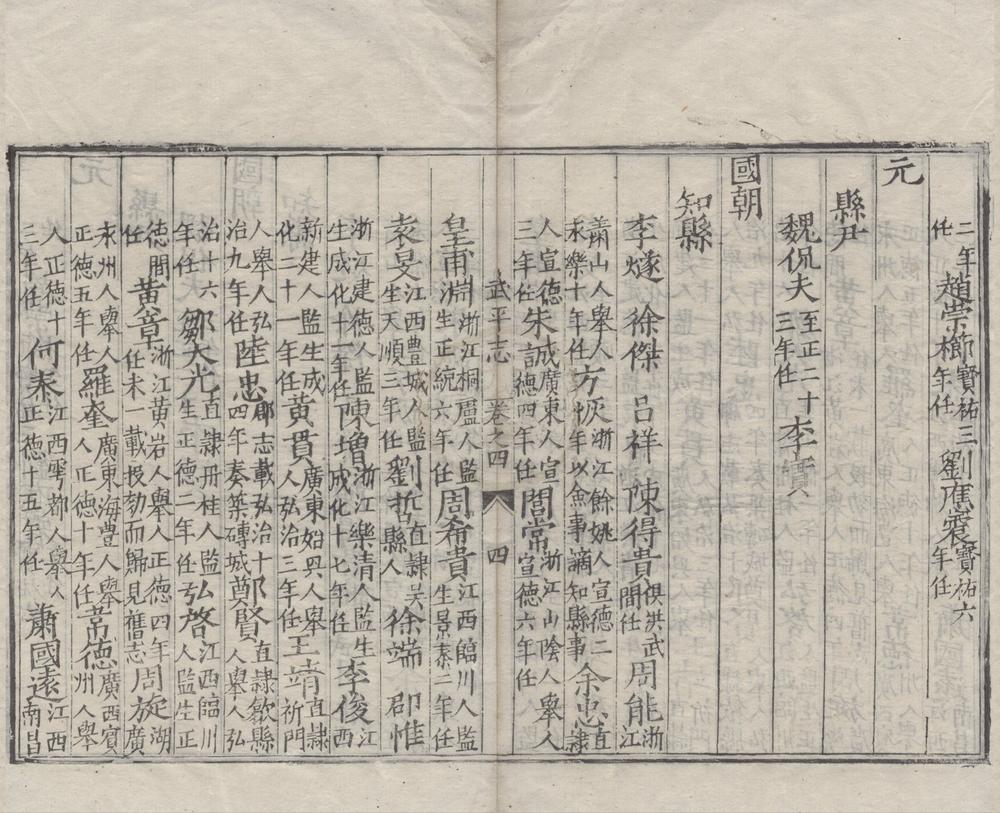 二年任趙崇櫛寶祐三年任劉應袞寶祐六年任
元
縣尹
魏侃夫至正二十三年任李實
國朝
知縣
李燧徐傑呂祥陳得貴俱洪武間任周能浙江
蕭山人舉人永樂十年任方恢浙江餘姚人宣德二年以僉事謫知縣事余忠直隸
人宣德三年任朱誠廣東人宣德四年任閻常浙江山陰人舉人宣德六年任
武平志 卷之四 四
皇甫渊浙江桐廬人監生正統六年任周希貴江西臨川人監生景泰二年任
袁旻江西豐城人監生天順三年任劉哲直隸吳縣人徐端邵惟
浙江建德人監生成化十一年任陳增浙江樂清人監生成化十七年任李俊江西
新建人監生成化二十一年任黃貫廣東始興人舉人弘治三年任王靖直隸祈門
人舉人弘治九年任陸忠郡志載弘治十四年奏築磚城鄭賢直隸歙縣人舉人弘
治十六年任鄒大光直隸丹桂人監生正德二年任弘啓江西臨川人監生正
德間任黃韋浙江黃岩人舉人正德四年任未一載投劾而歸見舊志周旋湖廣
永州人舉人正德五年任羅奎廣東海豐人舉人正德十年任常德廣西賓州人舉
人正德十三年任何泰江西雩都人舉人正德十五年任蕭國遠江西南昌